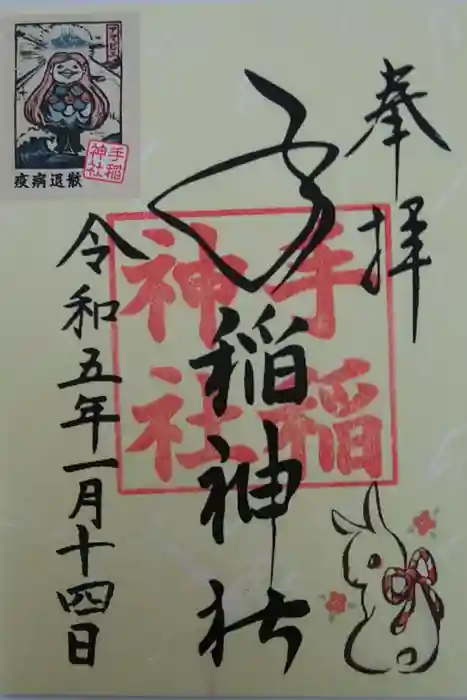 奉拝
手稲神社
手稲
神社
令和五年一月十四日
アマビエ
疫病退散
手稲
神社